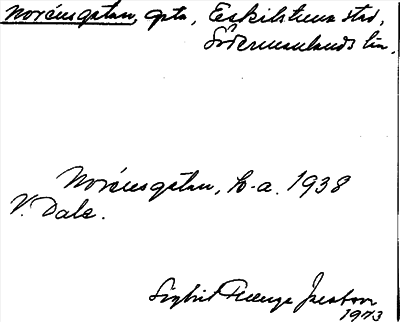 Noréusgatan, gata, Eskilstuna stad,
Södermanlands län.
Noréusgatan, k-a. 1938
V. Dala.
Sigbrit Plænge Jacobson
1973